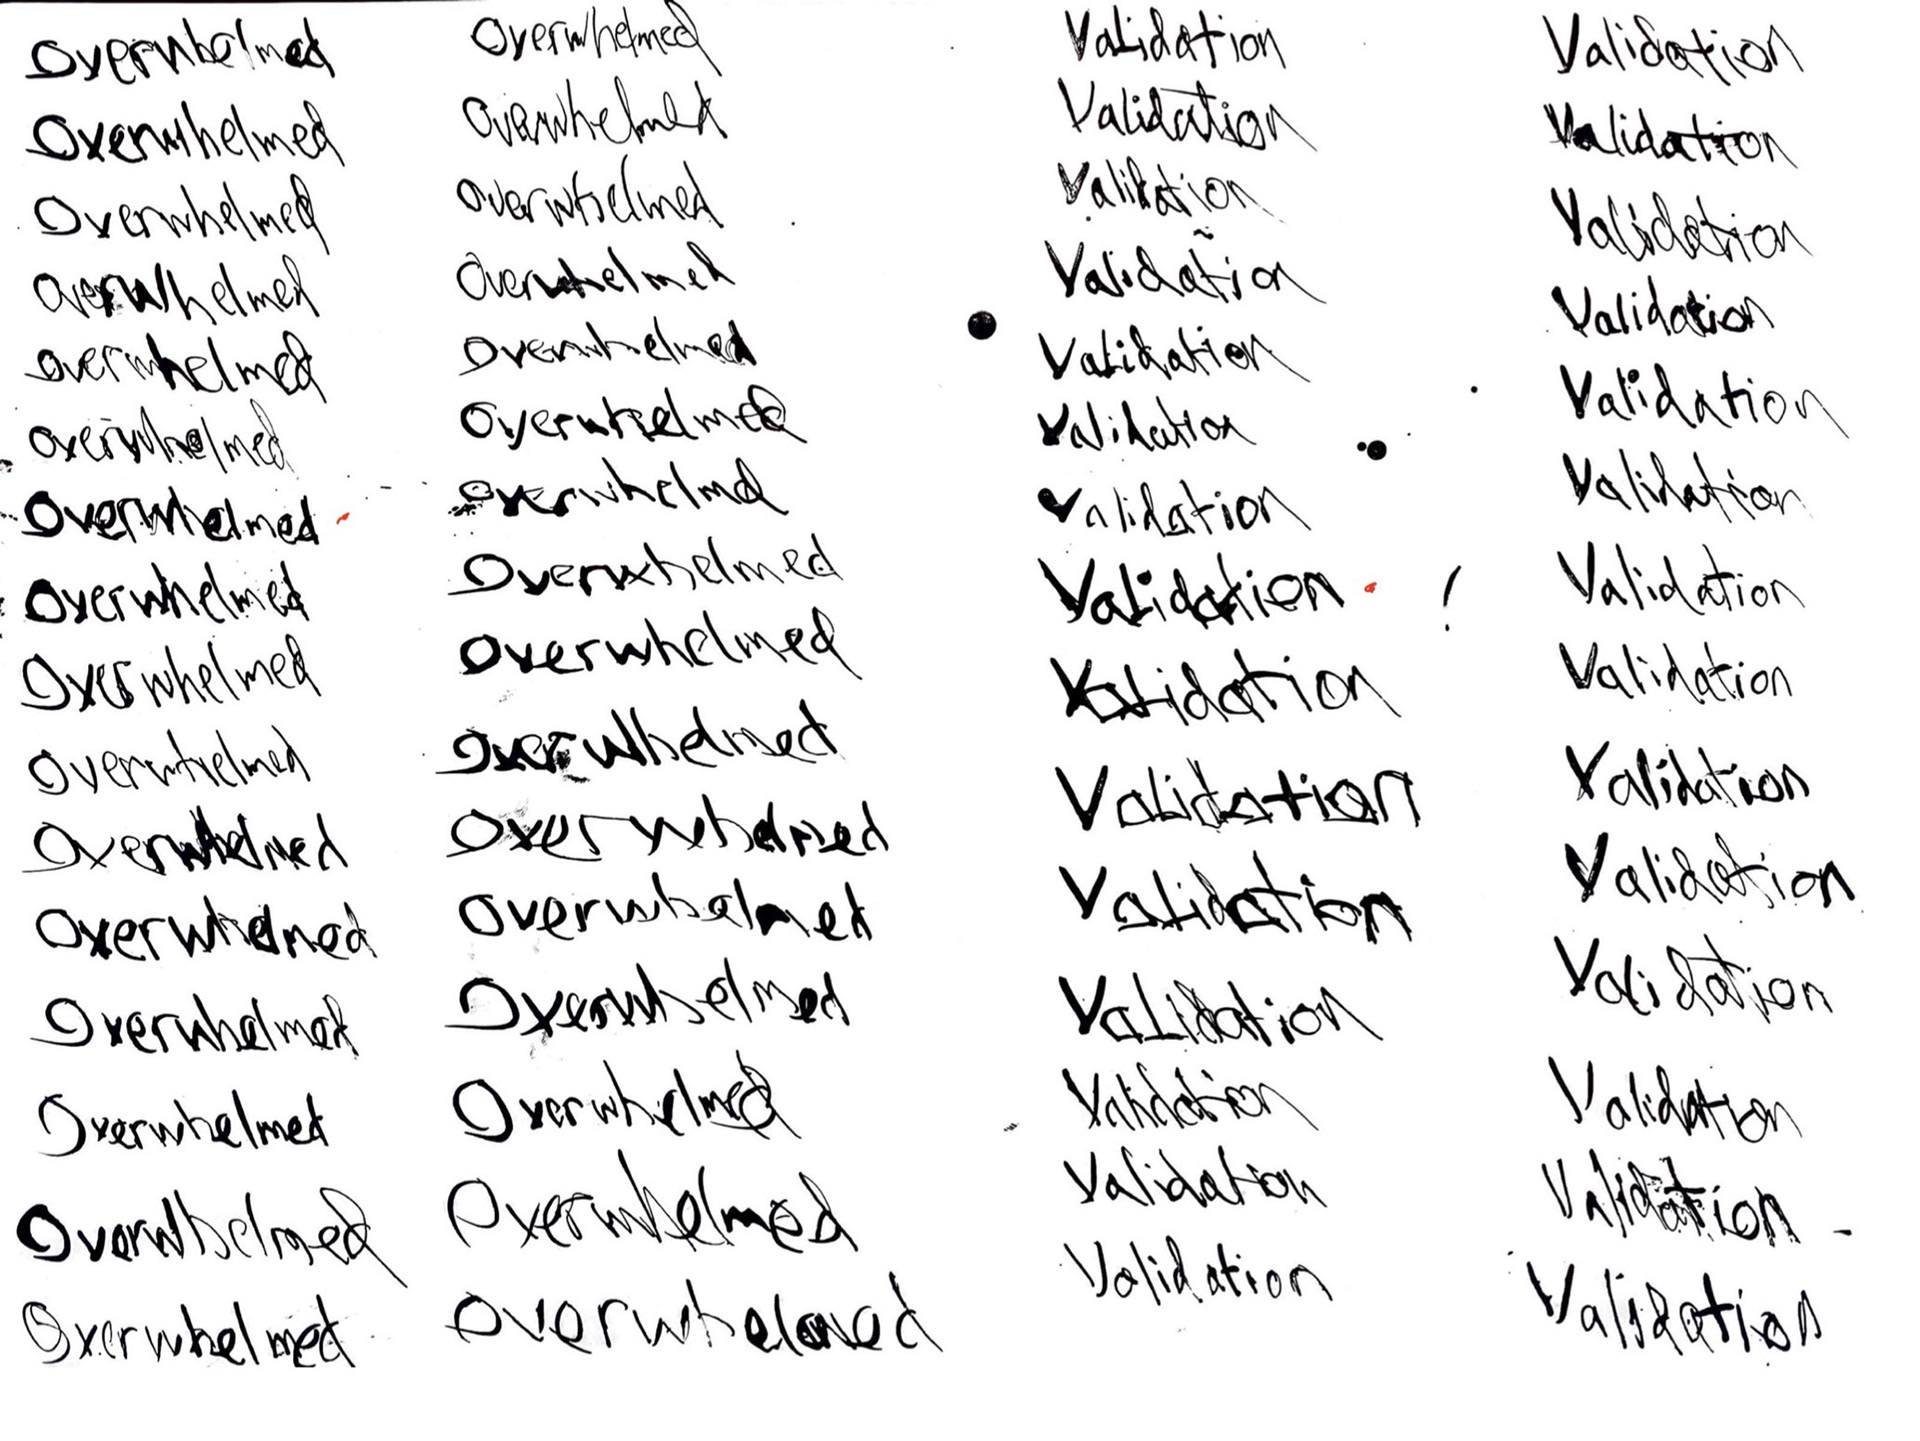 Overwhelmed
Overwhelmed
Overwhelmed
Overwhelmed
Overwhelmed
Overwhelmed
Overwhelmed
Overwhelmed
Overwhelmed
Overwhelmed
Overwhelmed
Overwhelmed
Overwhelmed
Overwhelmed
Overwhelmed
Overwhelmed
Overwhelmed
Overwhelmed
Overwhelmed
Overwhelmed
Overwhelmed
Overwhelmed
Overwhelmd
Overwhelmed
Overwhelmed
Overwhelmed
Overwhelmed
Overwhelmed
Overwhelmed
Overwhelmed
Overwhelmed
Overwhelmed
Validation
Validation
Validation
Validation
Validation
Validation
Validation
Validation
Validation
Validation
Validation
Validation
Validation
Validation
Validation
Validation
Validation
Validation
Validation
Validation
Validation
Validation
Validation
Validation
Validation
Validation
Validation
Validation
Validation